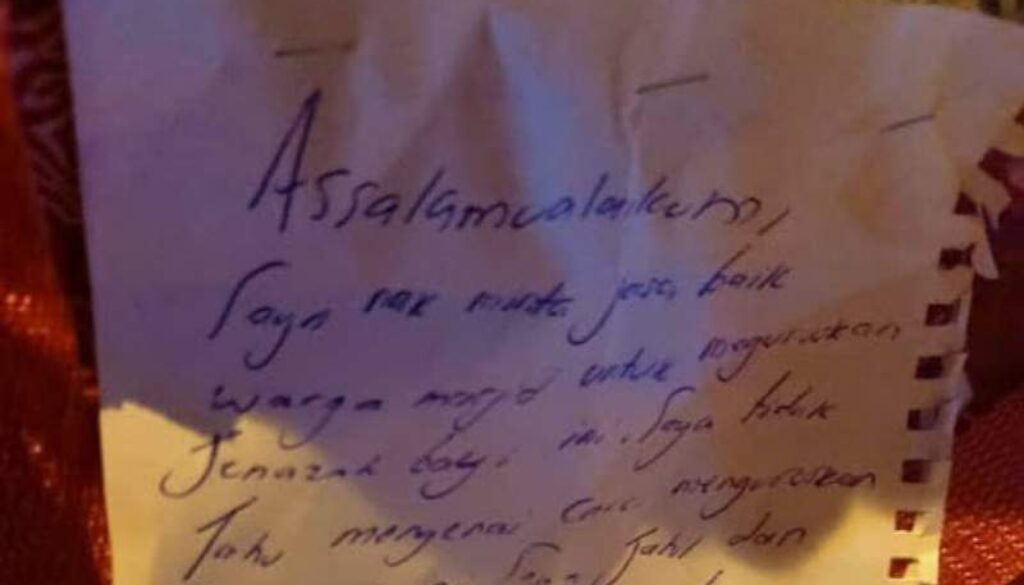 Assalamualaikum,
Saya nak minta jasa baik
warga masjid untuk meguruskan
Jenazah bayi ini. Saya tidak
Tahu mengenai cara menguruskan
Saya Jahil dan